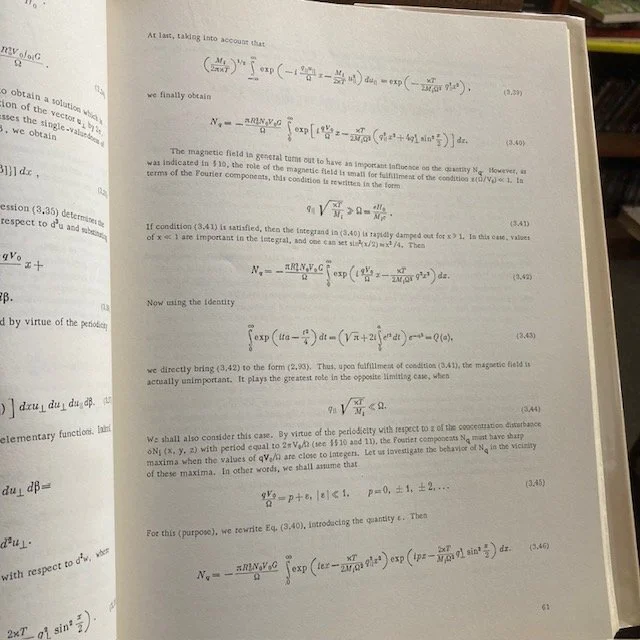 R₀²V₀f₀₁G
Ω
to obtain a solution which is
tion of the vector u⊥ by the
esses the single-valuedness of
, we obtain
β]}] dx ,
ession (3.35) determines the
respect to d²u and substituting
qV₀/Ω x +
dβ.
d by virtue of the periodicity
) ] dxu⊥ du⊥ du∥ dβ.
elementary functions. Indeed,
du⊥ dβ =
d²u⊥.
with respect to d²w, where
2κT q²⊥ sin² x/2 ) .
At last, taking into account that
(Mᵢ/2πκT)^1/2 ∫_{-∞}^{∞} exp (−i q∥u∥/Ω x − Mᵢ/2κT u∥²) du∥ = exp (−κT/2MᵢΩ² q∥²x²) , (3.39)
we finally obtain
N_q = − πR₀²N₀V₀G/Ω ∫_0^∞ exp [i qV₀/Ω x − κT/2MᵢΩ² (q∥²x² + 4q⊥² sin² x/2)] dx. (3.40)
The magnetic field in general turns out to have an important influence on the quantity N_q. However, as
was indicated in §10, the role of the magnetic field is small for fulfillment of the condition z(Ω/V₀) ≪ 1. In
terms of the Fourier components, this condition is rewritten in the form
q∥ √(κT/Mᵢ) ≫ Ω = eH₀/Mᵢc . (3.41)
If condition (3.41) is satisfied, then the integrand in (3.40) is rapidly damped out for x ≥ 1. In this case, values
of x ≪ 1 are important in the integral, and one can set sin²(x/2) ≈ x²/4. Then
N_q = − πR₀²N₀V₀G/Ω ∫_0^∞ exp (i qV₀/Ω x − κT/2MᵢΩ² q²x²) dx. (3.42)
Now using the identity
∫_0^∞ exp (ita − t²/4) dt = (√π + 2i ∫_0^a e^{t²} dt) e^{−a²} = Q (a), (3.43)
we directly bring (3.42) to the form (2.93). Thus, upon fulfillment of condition (3.41), the magnetic field is
actually unimportant. It plays the greatest role in the opposite limiting case, when
q∥ √(κT/Mᵢ) ≪ Ω. (3.44)
We shall also consider this case. By virtue of the periodicity with respect to z of the concentration disturbance
δNᵢ (x, y, z) with period equal to 2πV₀/Ω (see §§10 and 11), the Fourier components N_q must have sharp
maxima when the values of qV₀/Ω are close to integers. Let us investigate the behavior of N_q in the vicinity
of these maxima. In other words, we shall assume that
qV₀/Ω = p + ε, |ε| ≪ 1, p = 0, ± 1, ± 2, ... (3.45)
For this (purpose), we rewrite Eq. (3.40), introducing the quantity ε. Then
N_q = − πR₀²N₀V₀G/Ω ∫_0^∞ exp (iεx − κT/2MᵢΩ² q∥²x²) exp (ipx − 2κT/MᵢΩ² q⊥² sin² x/2) dx. (3.46)
61